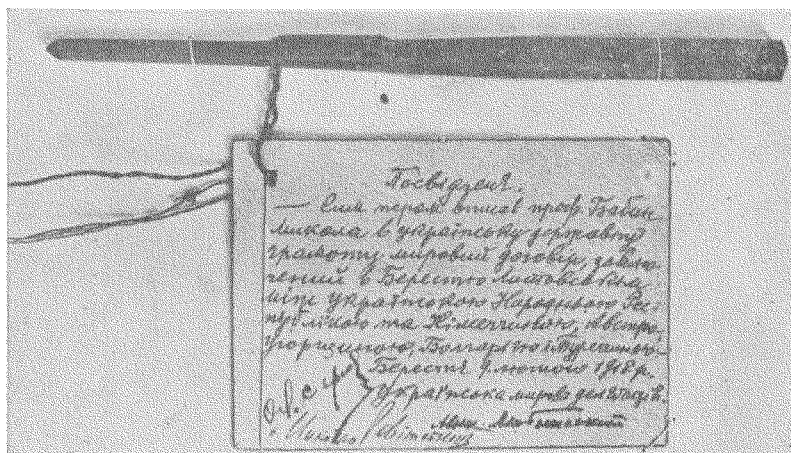 Посвідченє.
— Сим пером вписав проф. Бабан
микола в українську державну
грамоту мировий договір, заклю-
чений в Берестю Литовськім
між Українською Народньою Рес-
публїкою та Нїмеччиною, Австро-
Угорщиною, Болгарією і Туреччиною.
Берестє 9 лютого 1918 р.
Українська мирова делєґація.
Мик. Любинський